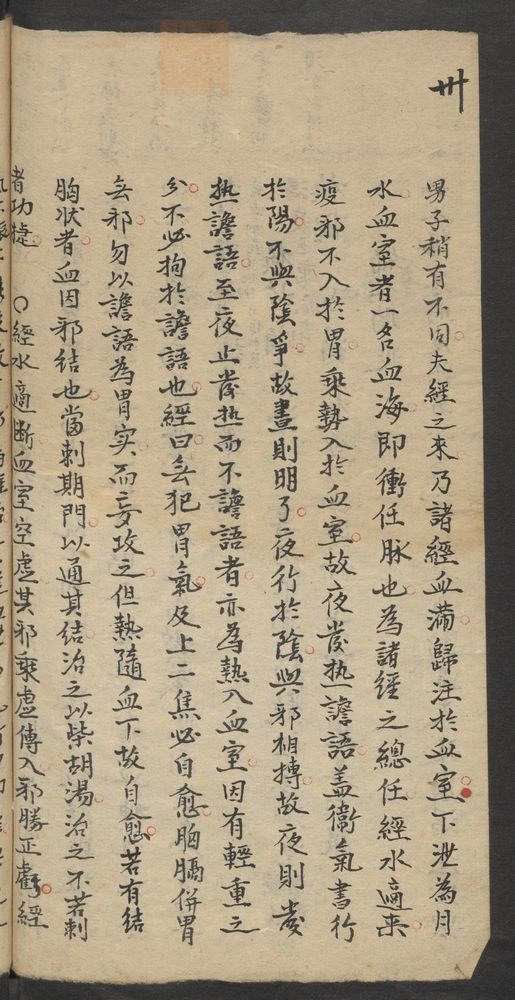 卅
男子稍有不同夫經之來乃諸經血滿歸注於血室下泄為月
水血室者一名血海即衝任脉也為諸經之總任經水適來
疫邪不入於胃乘勢入於血室故夜發热譫語盖衛氣晝行
於陽不與陰爭故晝則明了夜行於陰與邪相搏故夜則發
热譫語至夜止發热而不譫語者亦為熱入血室因有輕重之
分不必拘於譫語也經曰無犯胃氣及上二焦必自愈胸膈併胃
無邪勿以譫語為胃实而妄攻之但熱隨血下故自愈若有結
胸狀者血因邪結也當刺期門以通其結治之以柴胡湯治之不若刺
者功捷 〇經水適斷血室空虛其邪乘虛傳入邪勝正虧經